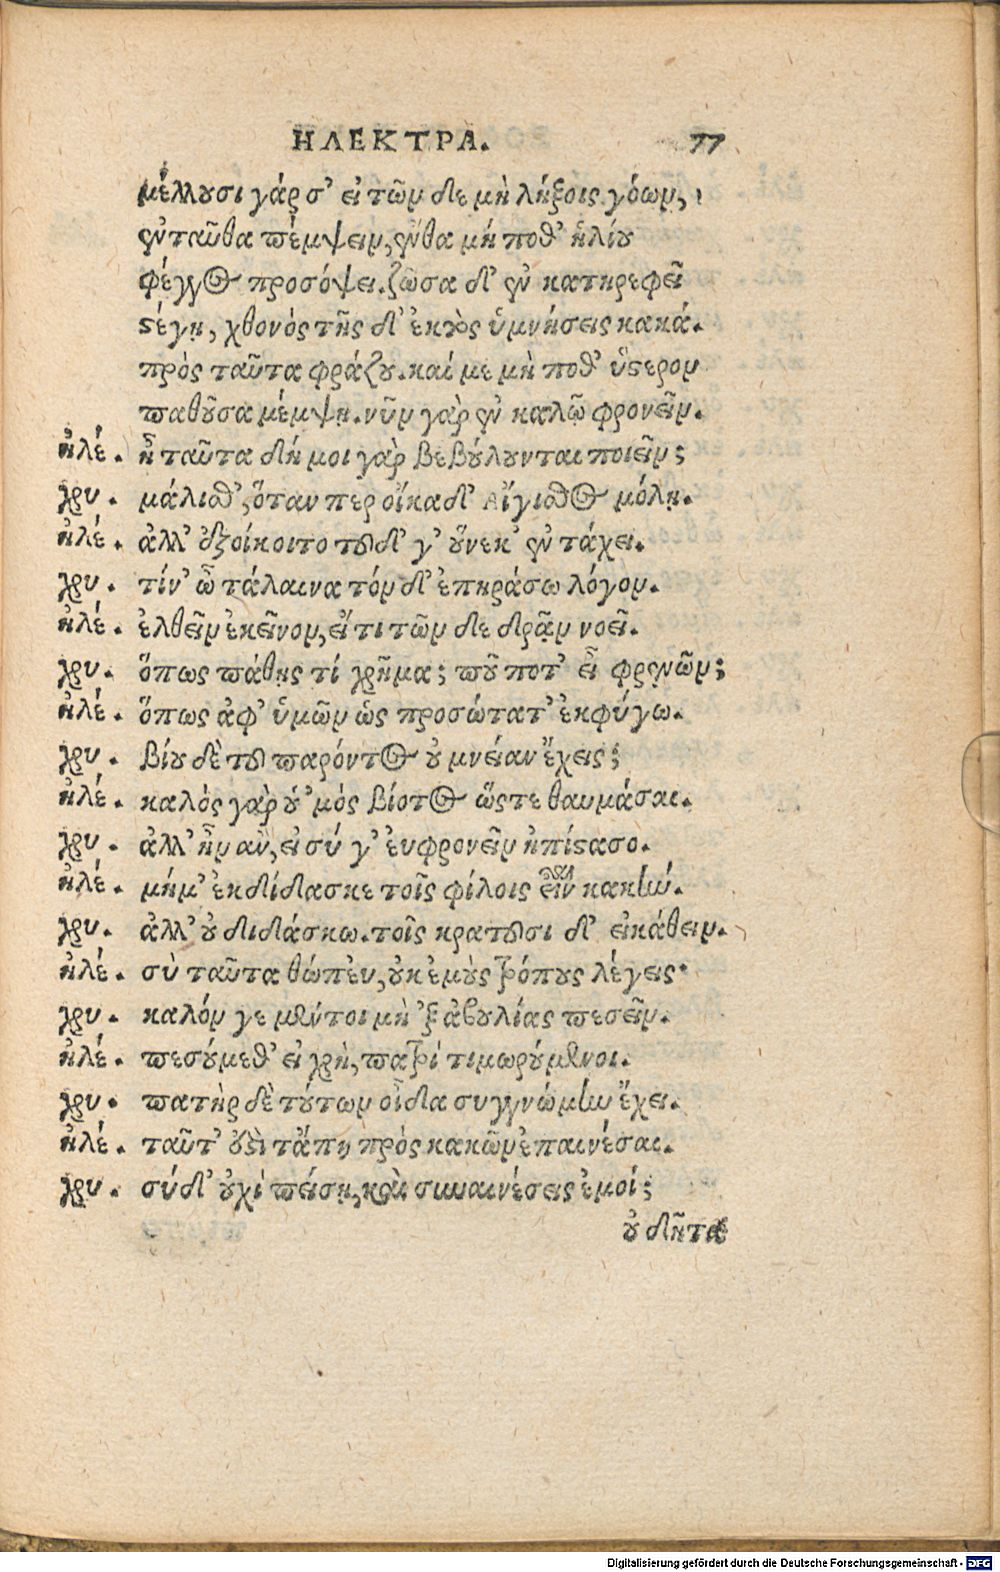 ΗΛΕΚΤΡΑ. 77
μέλλουσι γάρ σ' εἰ τῶν δε μὴ λήξοις γόων,
ἐνταῦθα πέμψειν, ἔνθα μή ποθ' ἡλίου
φέγγος προσόψει. ζῶσα δ' ἐν κατηρεφεῖ
στέγῃ, χθονὸς τῆς δ' ἐκτὸς ὑμνήσεις κακά.
πρὸς ταῦτα φράζου. καί με μὴ ποθ' ὕστερον
παθοῦσα μέμψῃ. νῦν γὰρ ἐν καλῷ φρονεῖν.
ἠλέ. ἦ ταῦτα δή μοι γὰρ βεβούλουνται ποιεῖν;
χρυ. μάλισθ', ὅταν περ οἴκαδ' Αἴγισθος μόλῃ.
ἠλέ. ἀλλ' ἐξοίκοιτο τοῦδ' γ' οὕνεκ' ἐν τάχει.
χρυ. τίν' ὦ τάλαινα τόνδ' ἐπηράσω λόγον.
ἠλέ. ἐλθεῖν ἐκεῖνον, εἴ τι τῶν δε δρᾷν νοεῖ.
χρυ. ὅπως πάθῃς τί χρῆμα; ποῦ ποτ' εἶ φρενῶν;
ἠλέ. ὅπως ἀφ' ὑμῶν ὡς προσώτατ' ἐκφύγω.
χρυ. βίου δὲ τοῦ παρόντος οὐ μνείαν ἔχεις;
ἠλέ. καλὸς γὰρ οὑ 'μὸς βίοτος ὥστε θαυμάσαι.
χρυ. ἀλλ' ἦν ἂν, εἰ σύ γ' εὐφρονεῖν ἠπίστασο.
ἠλέ. μή μ' ἐκδίδασκε τοῖς φίλοις εἶναι κακήν.
χρυ. ἀλλ' οὐ διδάσκω. τοῖς κρατοῦσι δ' εἰκάθειν.
ἠλέ. σὺ ταῦτα θώπευ, οὐκ ἐμοὺς τρόπους λέγεις·
χρυ. καλόν γε μέντοι μὴ 'ξ ἀβουλίας πεσεῖν.
ἠλέ. πεσούμεθ' εἰ χρὴ, πατρὶ τιμωρούμενοι.
χρυ. πατὴρ δὲ τούτων οἶδα συγγνώμην ἔχει.
ἠλέ. ταῦτ' ἐστὶ τἄπη πρὸς κακῶν ἐπαινέσαι.
χρυ. σύ δ' οὐχὶ πείσῃ, καὶ συναινέσεις ἐμοί;
οὐ δῆτα
Digitalisierung gefördert durch die Deutsche Forschungsgemeinschaft - DFG